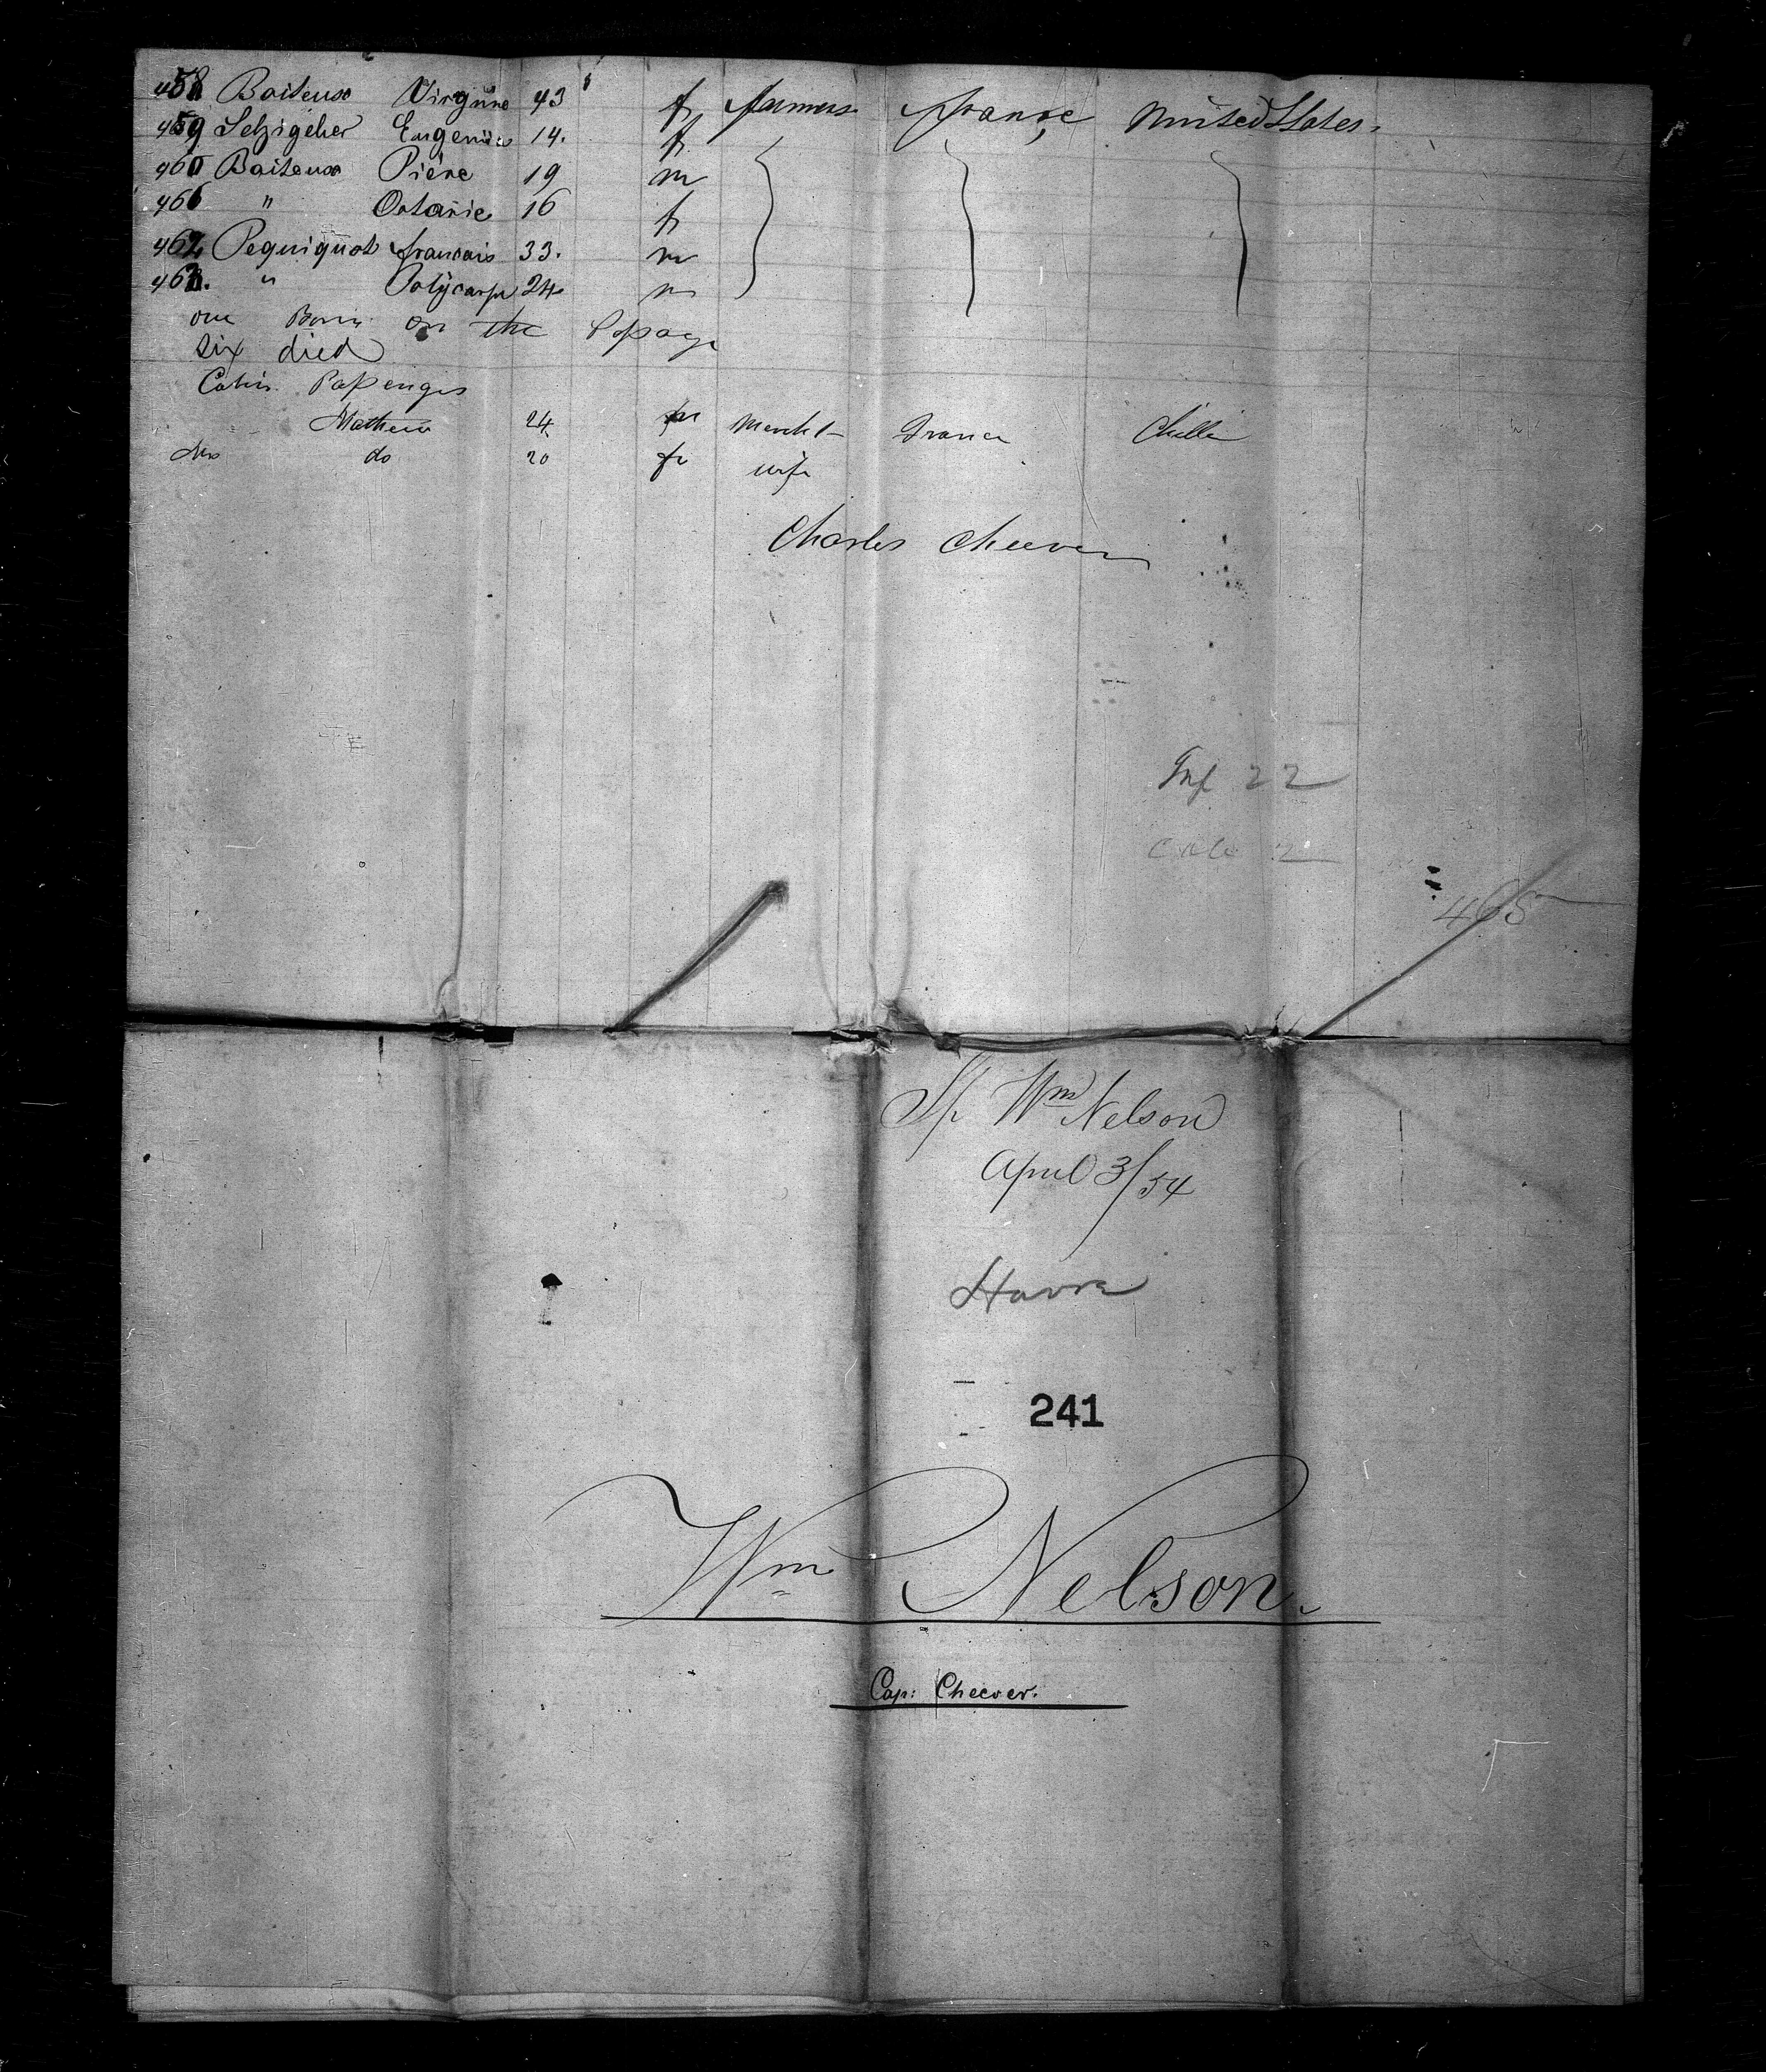 458 Baiteux Virginie 43 f farmers france United States.
459 Selzigeher Eugenie 14. f
460 Baiteux Piére 19 m
461 " Octavie 16 f
462 Pequignot francais 33. m
463. " Polycarp 24 m
one Born on the Passage
Six died
Cabin Passengers
Mathieu 24 m Mercht France Chilli
Mrs do 20 fe wife
Charles Cheever
Inf 22
Cab 2
465
Sp Wm Nelson
April 3/54
Havre
241
Wm Nelson.
Cap: Cheever.